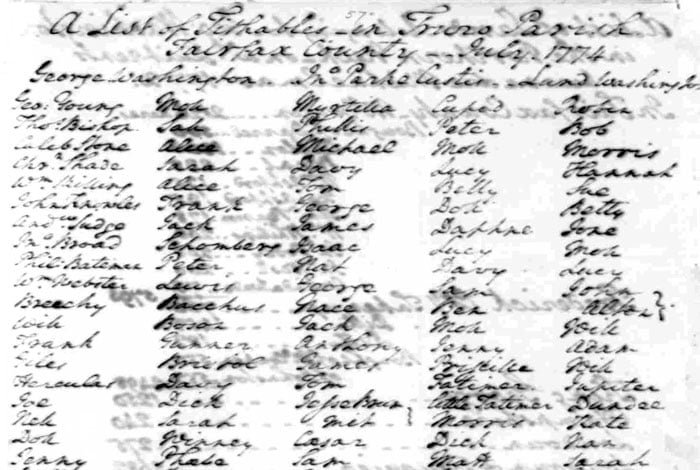 A List of Tithables in Truro Parish
Fairfax County July 1774
George Washington Jnº Parke Custis Lund Washington
Geo: Young Moll Myrtilla Cupid Robin
Thoˢ Bishop Sall Phillis Peter Bob
Caleb Stone Alice Michael Moll Morris
Chrʳ Shade Sarah Davy Lucy Hannah
Wᵐ Billing Alice Tom Betty Sue
John Knowles Frank George Doll Betty
Andʷ Judge Jack James Daphne Jone
Jnº Broad Schomberg Isaac Lucy Moll
Phil: Bateman Peter Nat Davy Lucy
Wᵐ Webster Lewis George Sam John
Breechy Bacchus Nace Ben Alton
Will Boson Jack Moll Will
Frank Gunner Anthony Jenny Adam
Giles Bristol James Priscilla
Hercules Davy Tom Jupiter
Joe Dick Dundee
Nell Sarah Morris Kate
Doll Winney Cæsar Dick Nan
Jenny Phebe Sam Matt Sarah